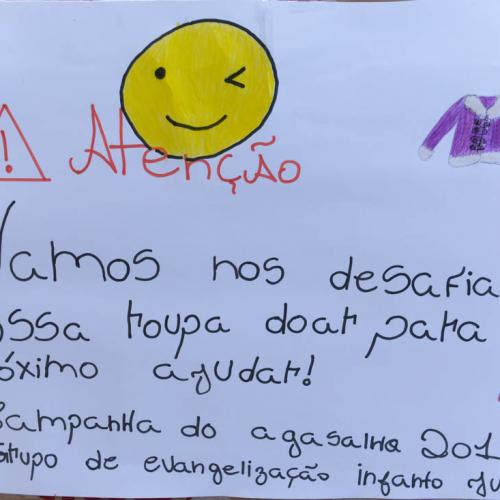 ! Atenção
Vamos nos desafia
ossa roupa doar para
óximo ajudar!
Campanha do agasalho 201
Grupo de evangelização infanto ju